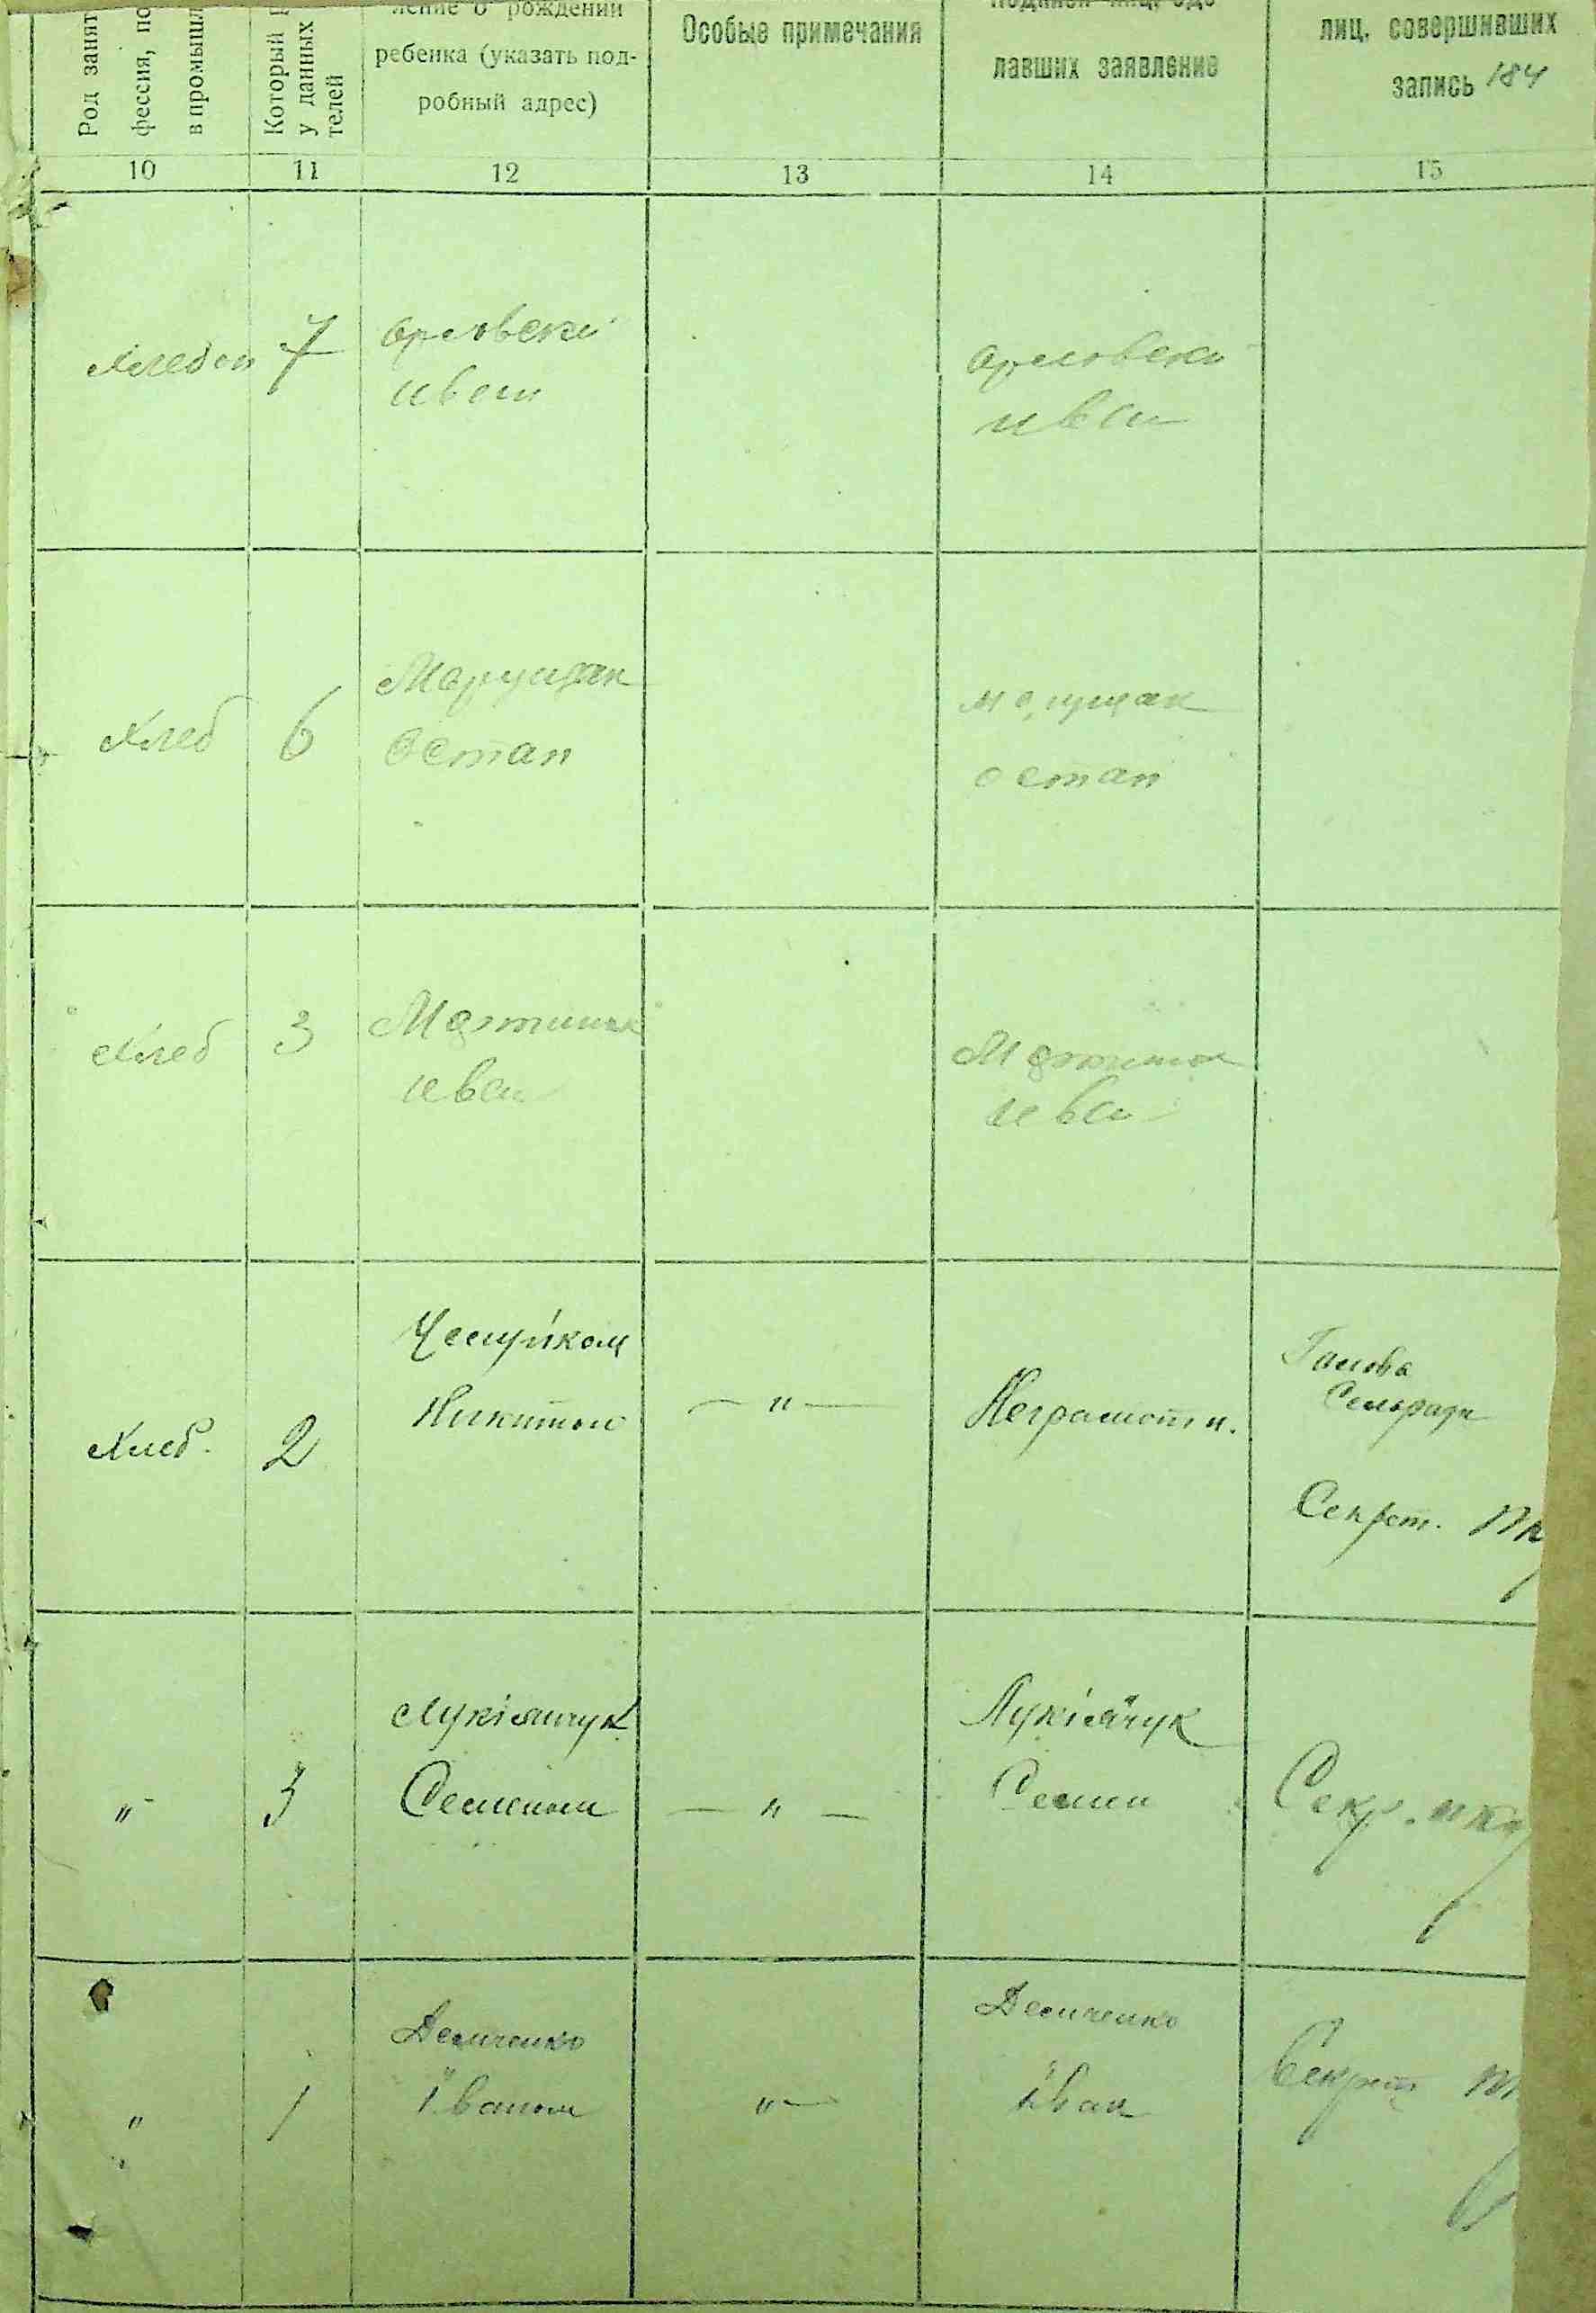 Род занят
фессия, по
в промышл
Который р
у данных
телей
ление о рождении
ребенка (указать под-
робный адрес)
Особые примечания
лавших заявление
лиц, совершивших
запись 184
10 11 12 13 14 15
Хлебоп 7 Орловски
Иван
Орловски
Иван
Хлеб 6 Марущак
Остап
Остап
Хлеб 3
Иван
Иван
Хлеб. 2
Никитою
— " —
Неграмотн.
Голова
Сельради
Секрет.
" 3 Лукіянчук
Семеном
— " —
Лукіячук
Семен
Секр.
" 1 Демченко
Іваном
" —
Демченко
Іван
Секрет